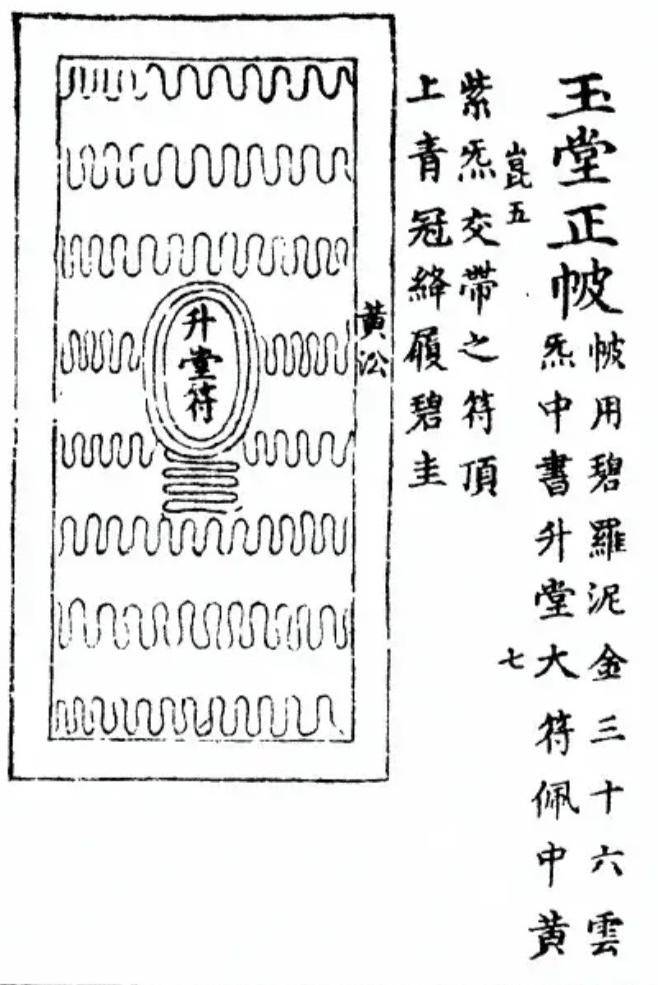 玉堂正帔
帔用碧羅泥金三十六雲
炁中書升堂大符佩中黃
崑五
七
紫炁交帶之符頂
上青冠絳履碧圭
黃㳂
升堂符